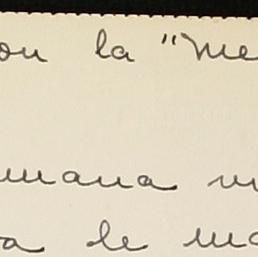 on la "Me
mana m
a de ma